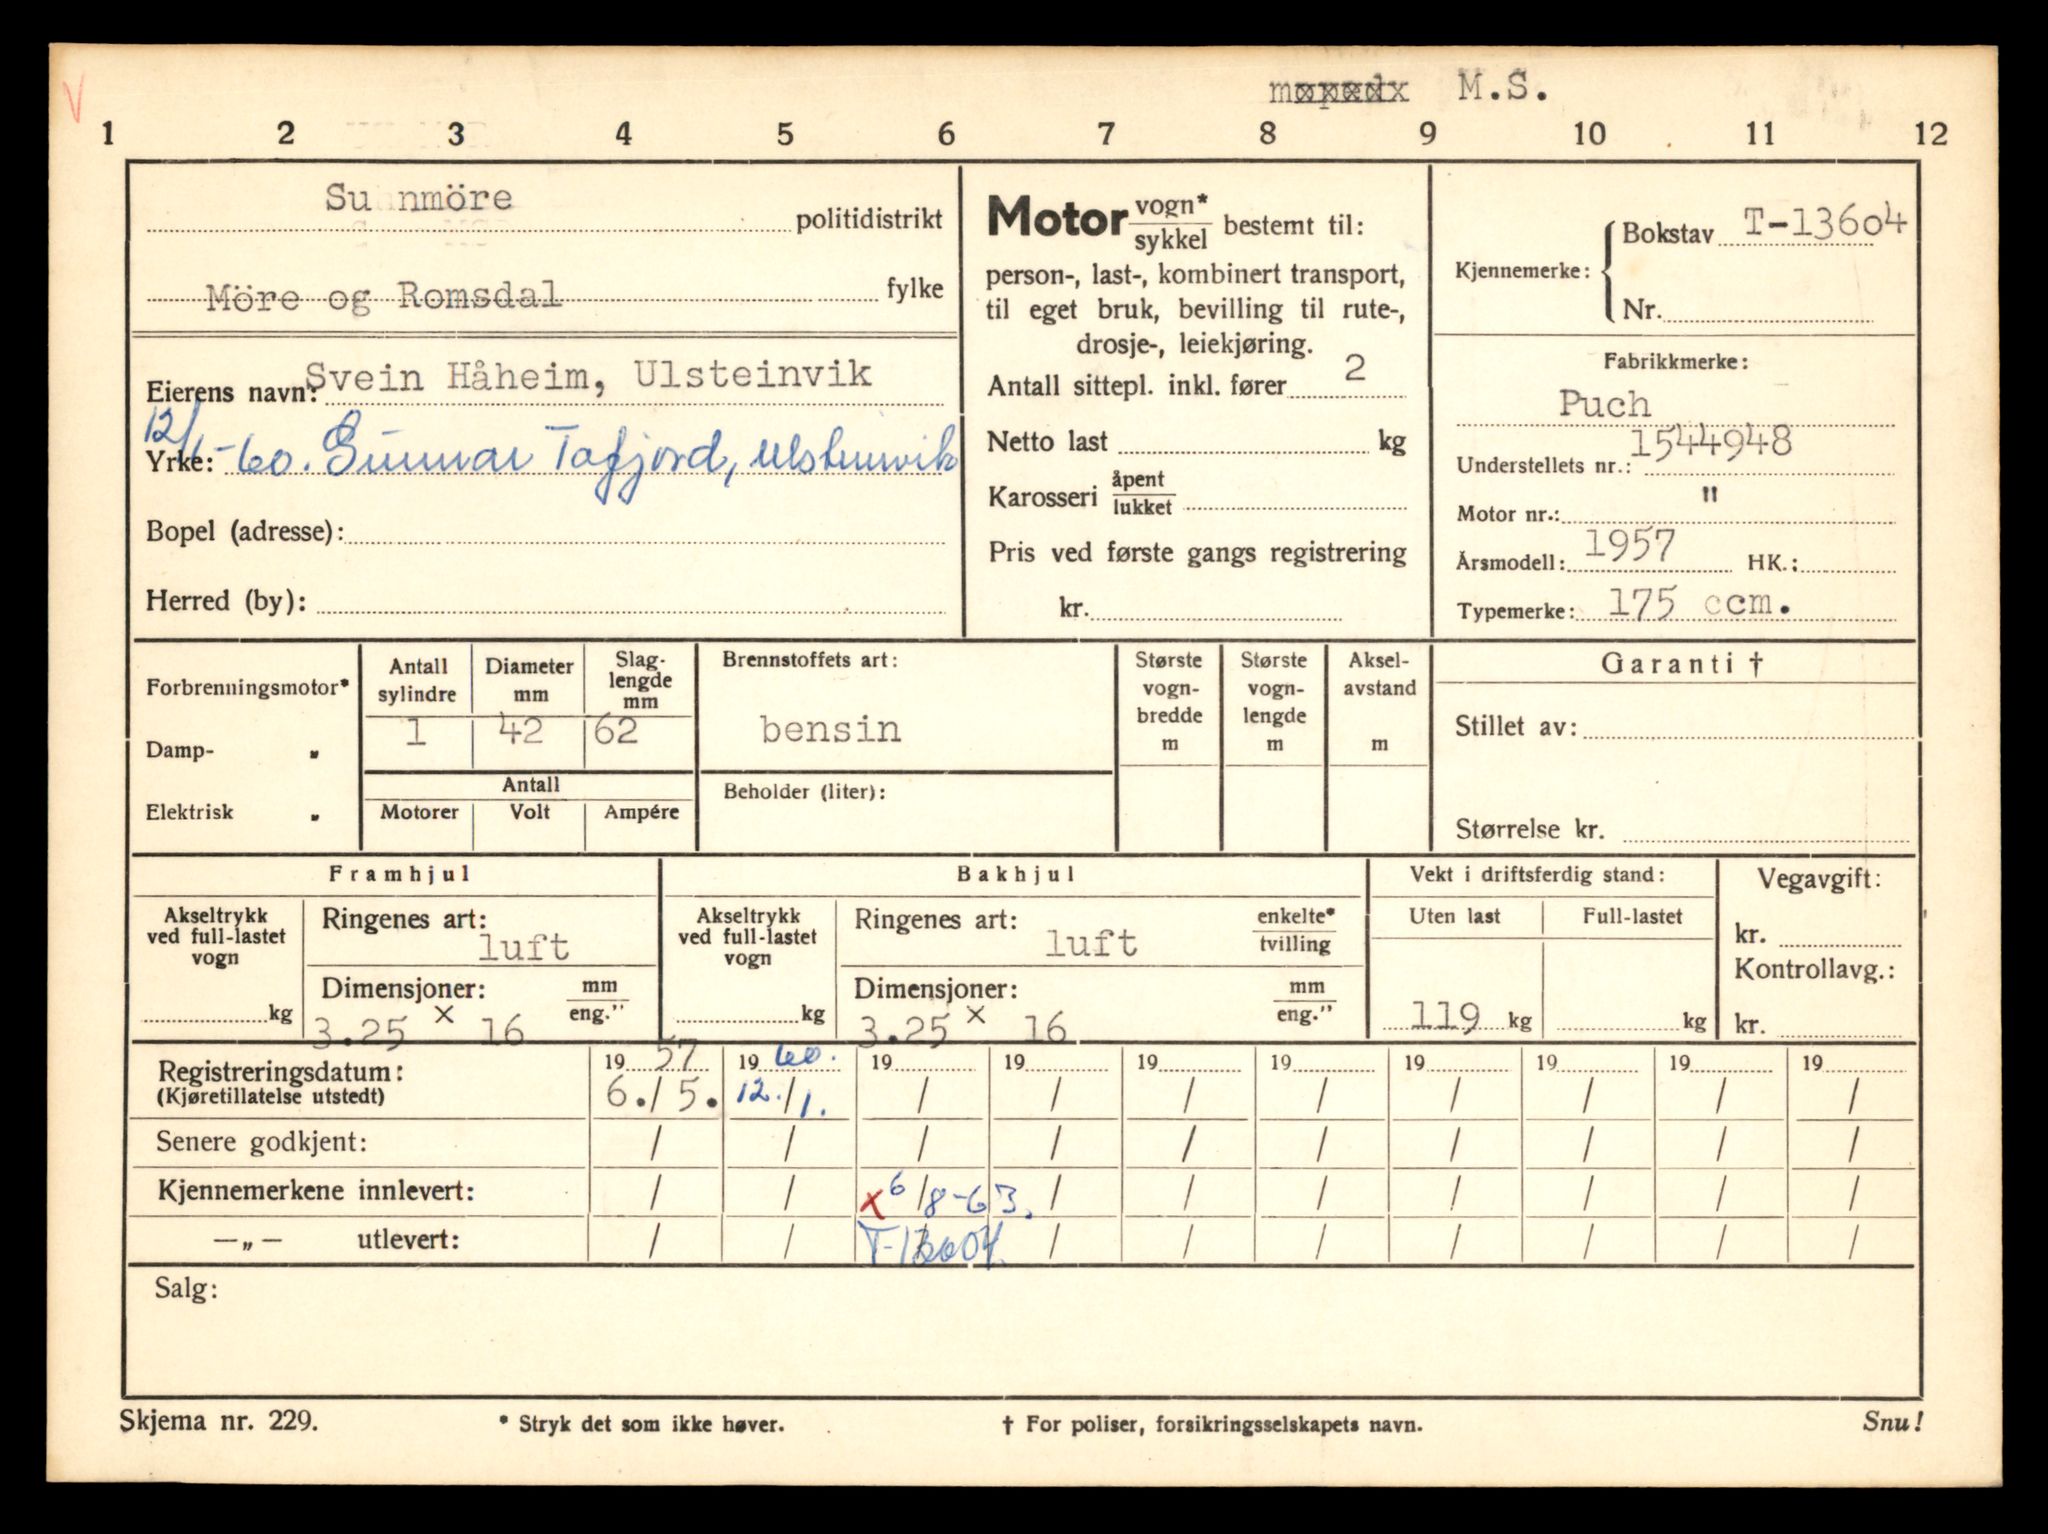 mopedx M.S.
1 2 3 4 5 6 7 8 9 10 11 12
Sunnmöre politidistrikt
Möre og Romsdal fylke
Eierens navn: Svein Håheim, Ulsteinvik
12/1-60. Gunnar Tafjord, Ulsteinvik
Yrke:
Bopel (adresse):
Herred (by):
Motor vogn* / sykkel bestemt til:
person-, last-, kombinert transport,
til eget bruk, bevilling til rute-,
drosje-, leiekjøring.
Antall sittepl. inkl. fører 2
Netto last kg
Karosseri åpent / lukket
Pris ved første gangs registrering
kr.
Kjennemerke: Bokstav T-13604
Nr.
Fabrikkmerke:
Puch
Understellets nr.: 1544948
Motor nr.: "
Årsmodell: 1957 HK.:
Typemerke: 175 ccm.
Forbrenningsmotor*
Damp- „
Elektrisk „
Antall sylindre
1
Diameter mm
42
Slag-
lengde
mm
62
Antall
Motorer Volt Ampére
Brennstoffets art:
bensin
Beholder (liter):
Største
vogn-
bredde
m
Største
vogn-
lengde
m
Aksel-
avstand
m
Garanti †
Stillet av:
Størrelse kr.
Framhjul
Akseltrykk
ved full-lastet
vogn
kg
Ringenes art:
luft
Dimensjoner: mm / eng."
3.25 x 16
Bakhjul
Akseltrykk
ved full-lastet
vogn
kg
Ringenes art: enkelte* / tvilling
luft
Dimensjoner: mm / eng."
3.25 x 16
Vekt i driftsferdig stand:
Uten last Full-lastet
119 kg kg
Vegavgift:
kr.
Kontrollavg.:
kr.
Registreringsdatum: 19 57 19 60. 19 19 19 19 19 19 19 19
(Kjøretillatelse utstedt) 6./5. 12./1. / / / / / / / /
Senere godkjent: / / / / / / / / / /
Kjennemerkene innlevert: / / x 6/8-63. / / / / / / /
—„— utlevert: / / T-13604. / / / / / / /
Salg:
Skjema nr. 229. * Stryk det som ikke høver. † For poliser, forsikringsselskapets navn. Snu!